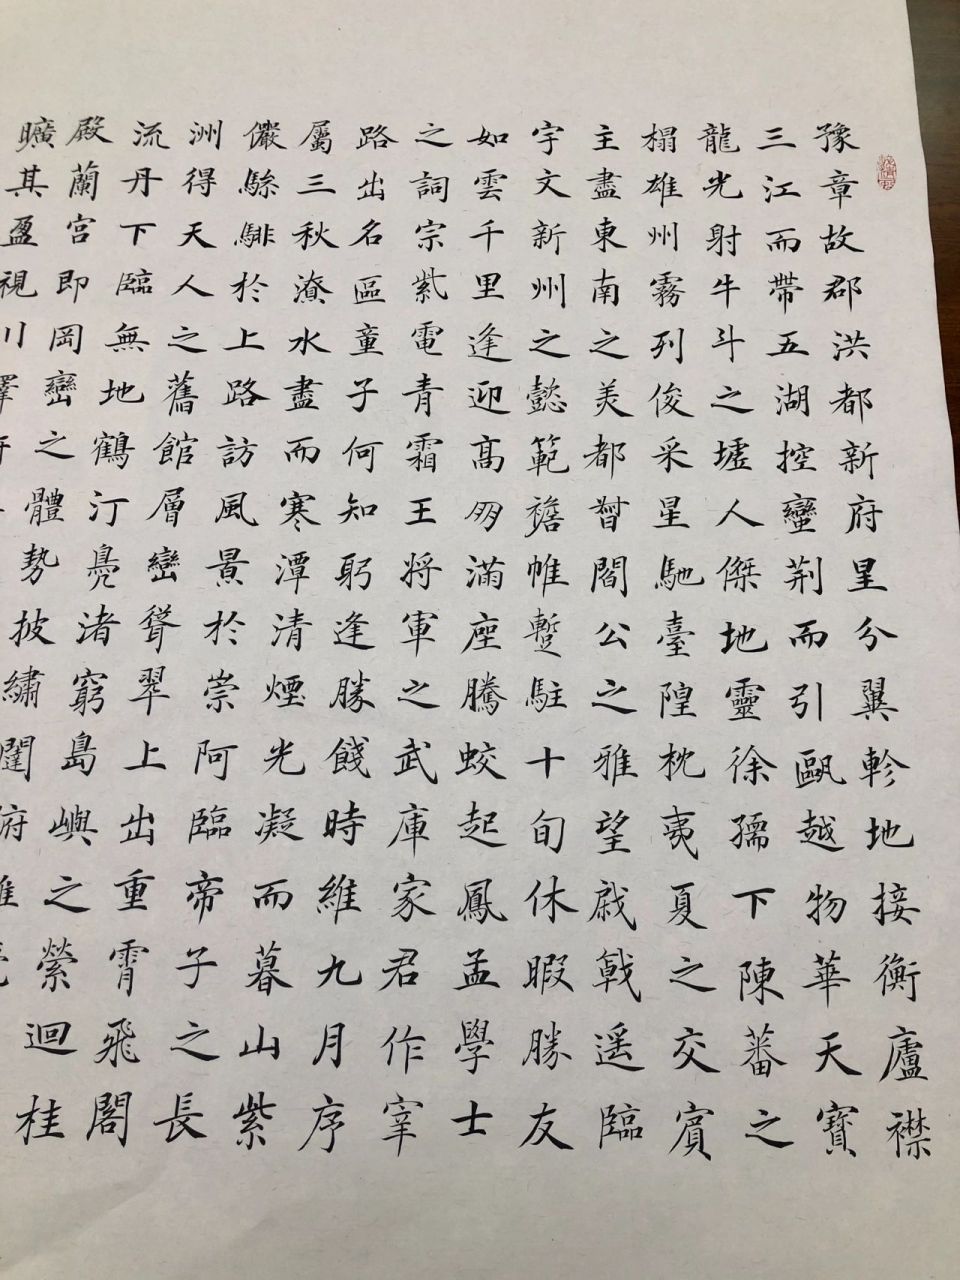 豫章故郡洪都新府星分翼軫地接衡廬襟
三江而帶五湖控蠻荆而引甌越物華天寶
龍光射牛斗之墟人傑地靈徐孺下陳蕃之
榻雄州霧列俊采星馳臺隍枕夷夏之交賓
主盡東南之美都督閻公之雅望戚戟遥臨
宇文新州之懿範襜帷蹔駐十旬休暇勝友
如雲千里逢迎高朋滿座騰蛟起鳳孟學士
之詞宗紫電青霜王將軍之武庫家君作宰
路出名區童子何知躬逢勝餞時維九月序
屬三秋潦水盡而寒潭清煙光凝而暮山紫
儼驂騑於上路訪風景於崇阿臨帝子之長
洲得天人之舊館層巒聳翠上出重霄飛閣
流丹下臨無地鶴汀鳧渚窮島嶼之縈迴桂
殿蘭宮即岡巒之體勢披繡闥俯
曠其盈視川